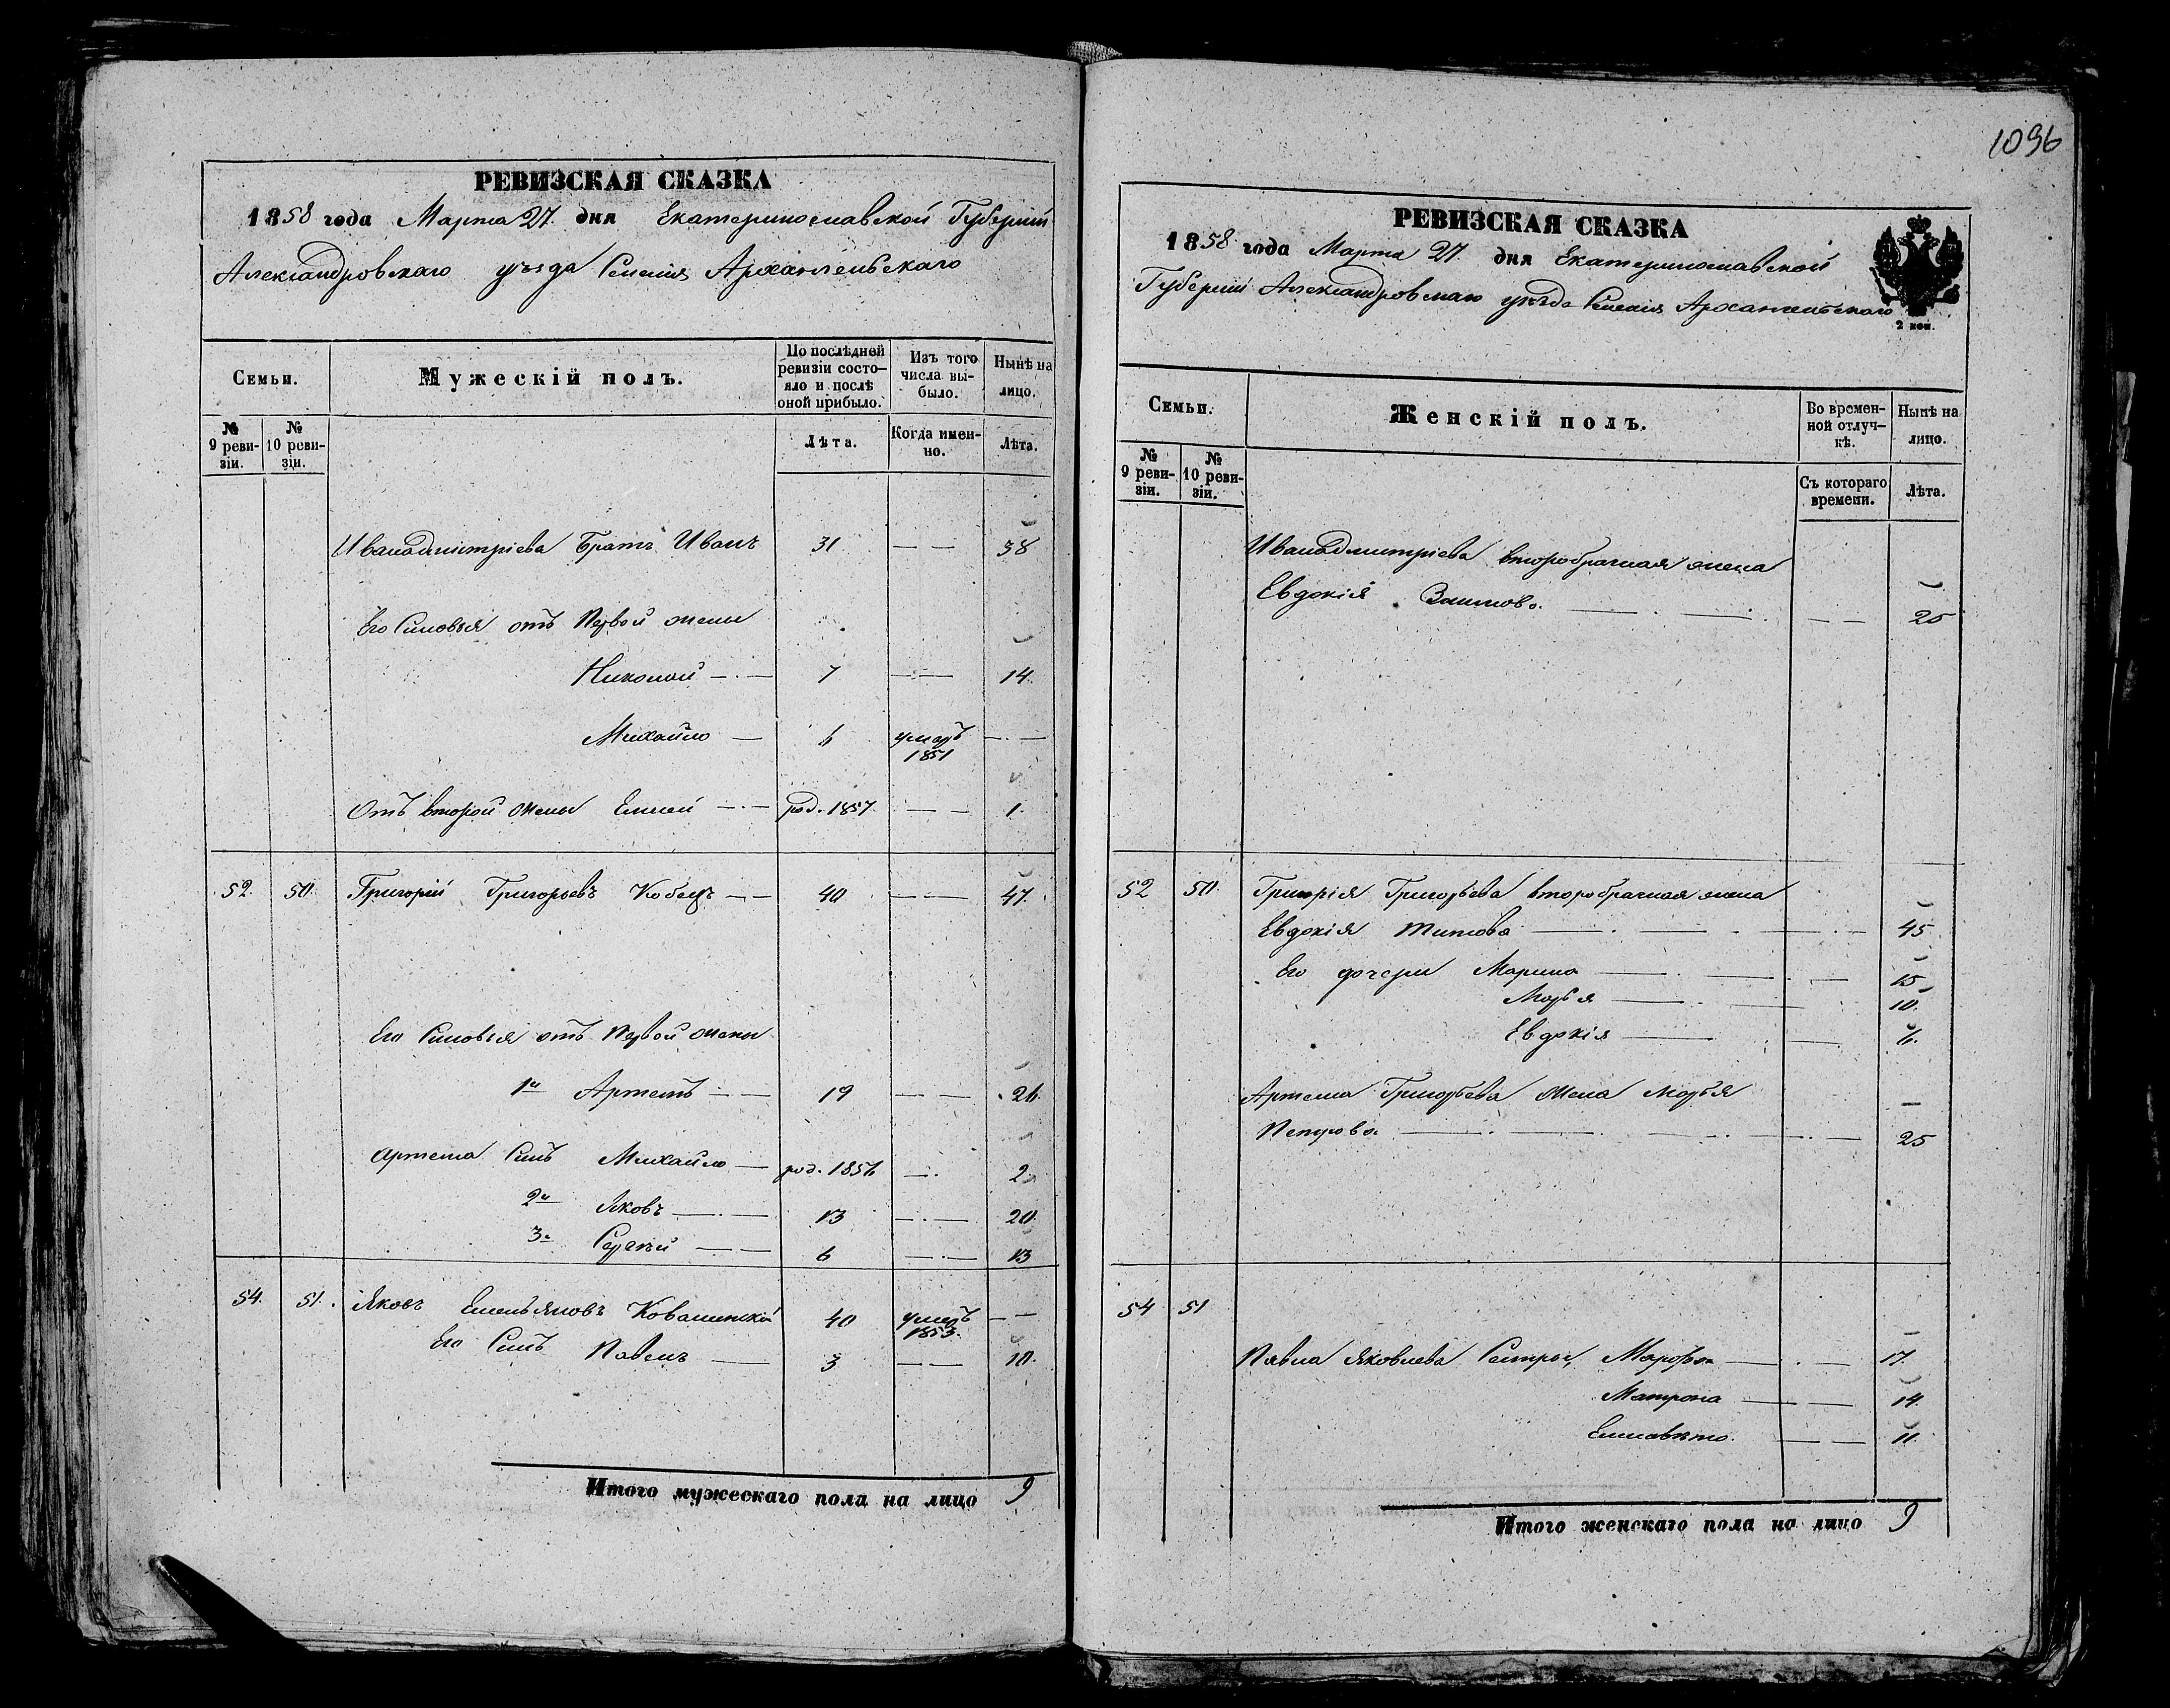 1096
РЕВИЗСКАЯ СКАЗКА
1858 года Марта 27. дня Екатеринославской Губерніи
Александровскаго уѣзда Селенія Архангельскаго
Семьи.
Мужескій полъ.
По послѣдней ревизіи состояло и послѣ оной прибыло.
Изъ того числа выбыло.
Нынѣ на лицо.
№ 9 ревизіи.
№ 10 ревизіи.
Лѣта.
Когда именно.
Лѣта.
Ивана Дмитріева Братъ Иванъ 31 — — 38
Его Сыновья отъ Первой жены
Николай — . — 7 — — 14.
Михайло — 6 умеръ 1851 — . —
Отъ второй жены Елисей — . — род. 1857. — — 1.
52. 50. Григорій Григорьевъ Кобецъ — — 40 — — 47.
Его Сыновья отъ Первой жены
1й Артемъ — — 19 — — 26.
Артема Сынъ Михайло — род. 1856 — . 2
2й Яковъ — . — 13 — . — 20.
3й Сергѣй — — 6 — . — 13
54. 51. Яковъ Емельяновъ Ковалинскій 40 умеръ 1853. — —
Его Сынъ Павелъ — 3 — — 10.
Итого мужескаго пола на лицо 9
РЕВИЗСКАЯ СКАЗКА
1858 года Марта 27. дня Екатеринославской
Губерніи Александровскаго уѣзда Селенія Архангельскаго
2 коп.
Семьи.
Женскій полъ.
Во временной отлучкѣ.
Нынѣ на лицо.
№ 9 ревизіи.
№ 10 ревизіи.
Съ котораго времени.
Лѣта.
Ивана Дмитріева второбрачная жена
Евдокія — . — . — — 25
52 50. Григорія Григорьева второбрачная жена
Евдокія Титова — . — . — . — 45
Его дочери Марина — . — . — 15
Марья — . — 10.
Евдокія — — 7.
Артема Григорьева жена Марья
Петрова — . — . — . — 25
54 51
Павла Яковлева Сестры, Марфа — . — 17.
Матрона — — 14.
Елисавета. — — 11.
Итого женскаго пола на лицо 9